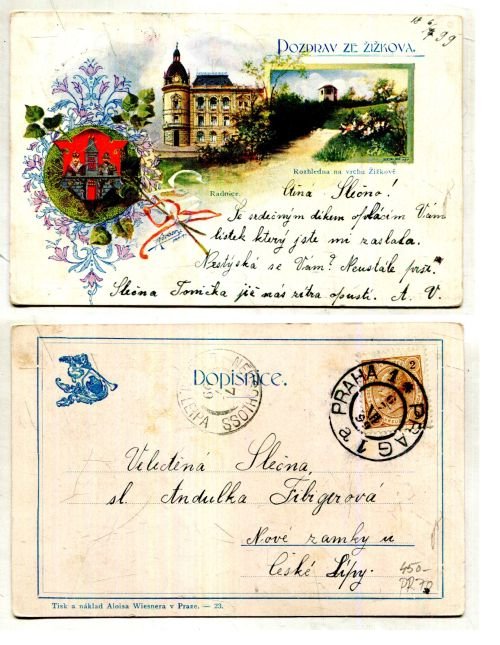 POZDRAV ZE ŽIŽKOVA.
99
Rozhledna na vrchu Žižkově
Radnice.
Ctná Slečno!
Se srdečným díkem oplácím Vám
lístek který jste mi zaslala.
Nestýská se Vám? Neustále prší.
Slečna Tonička již nás zítra opustí. A. V.
Dopisnice.
PRAHA 1 * PRAG 1 a
LEIPA
2
Veletěná Slečna,
sl. Andulka Fibigerová
Nové zamky u
České Lípy.
450-
Tisk a náklad Aloisa Wiesnera v Praze. — 23.